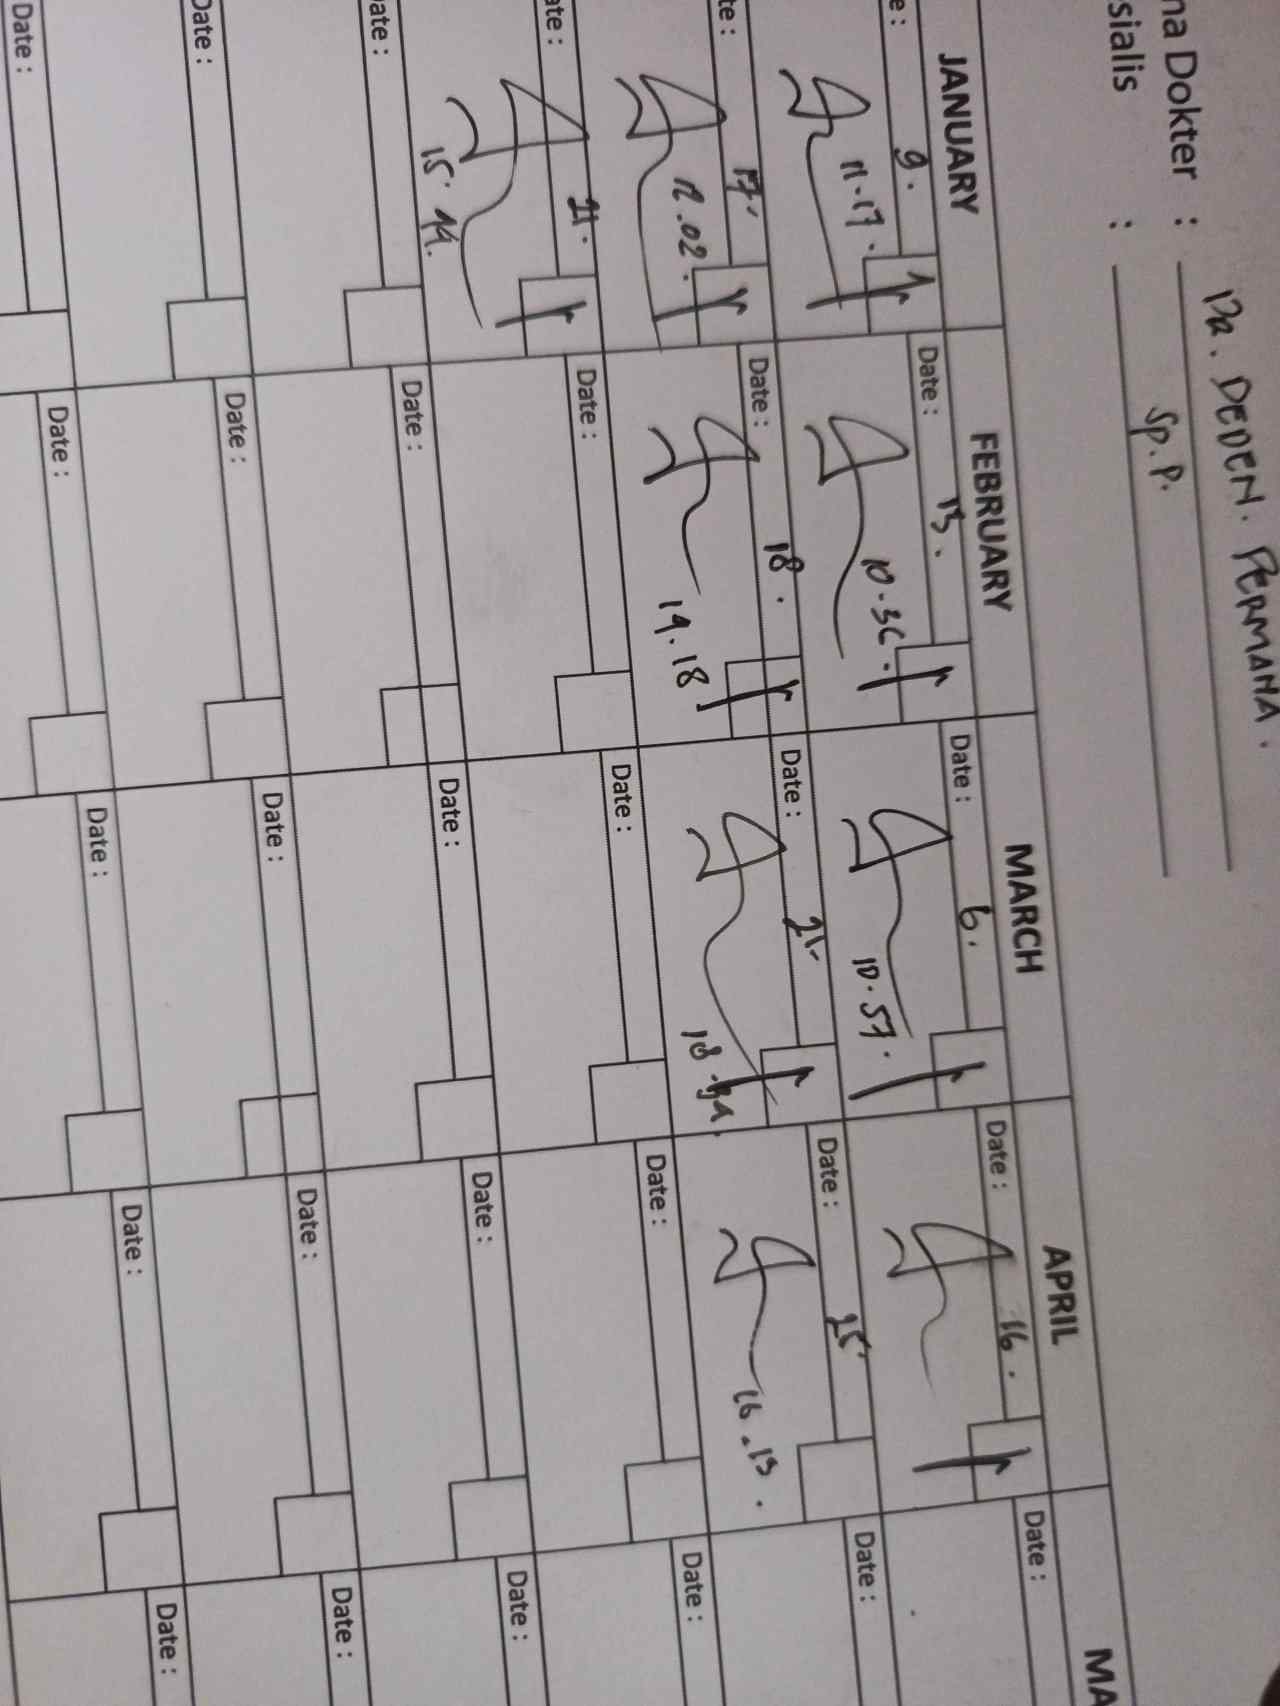 na Dokter : DR. DEDEN. PERMANA.
sialis : Sp.P.
JANUARY FEBRUARY MARCH APRIL MA
e : 9. Date : 13. Date : 6. Date : 16. Date :
11.17. 10.36. 10.57.
te : 17. Date : 18. Date : 21. Date : 25 Date :
12.02. 14.18 16.15.
ate : 21. Date : Date : Date : Date :
15.44.
ate : Date : Date : Date : Date :
Date : Date : Date : Date : Date :
Date : Date : Date : Date : Date :